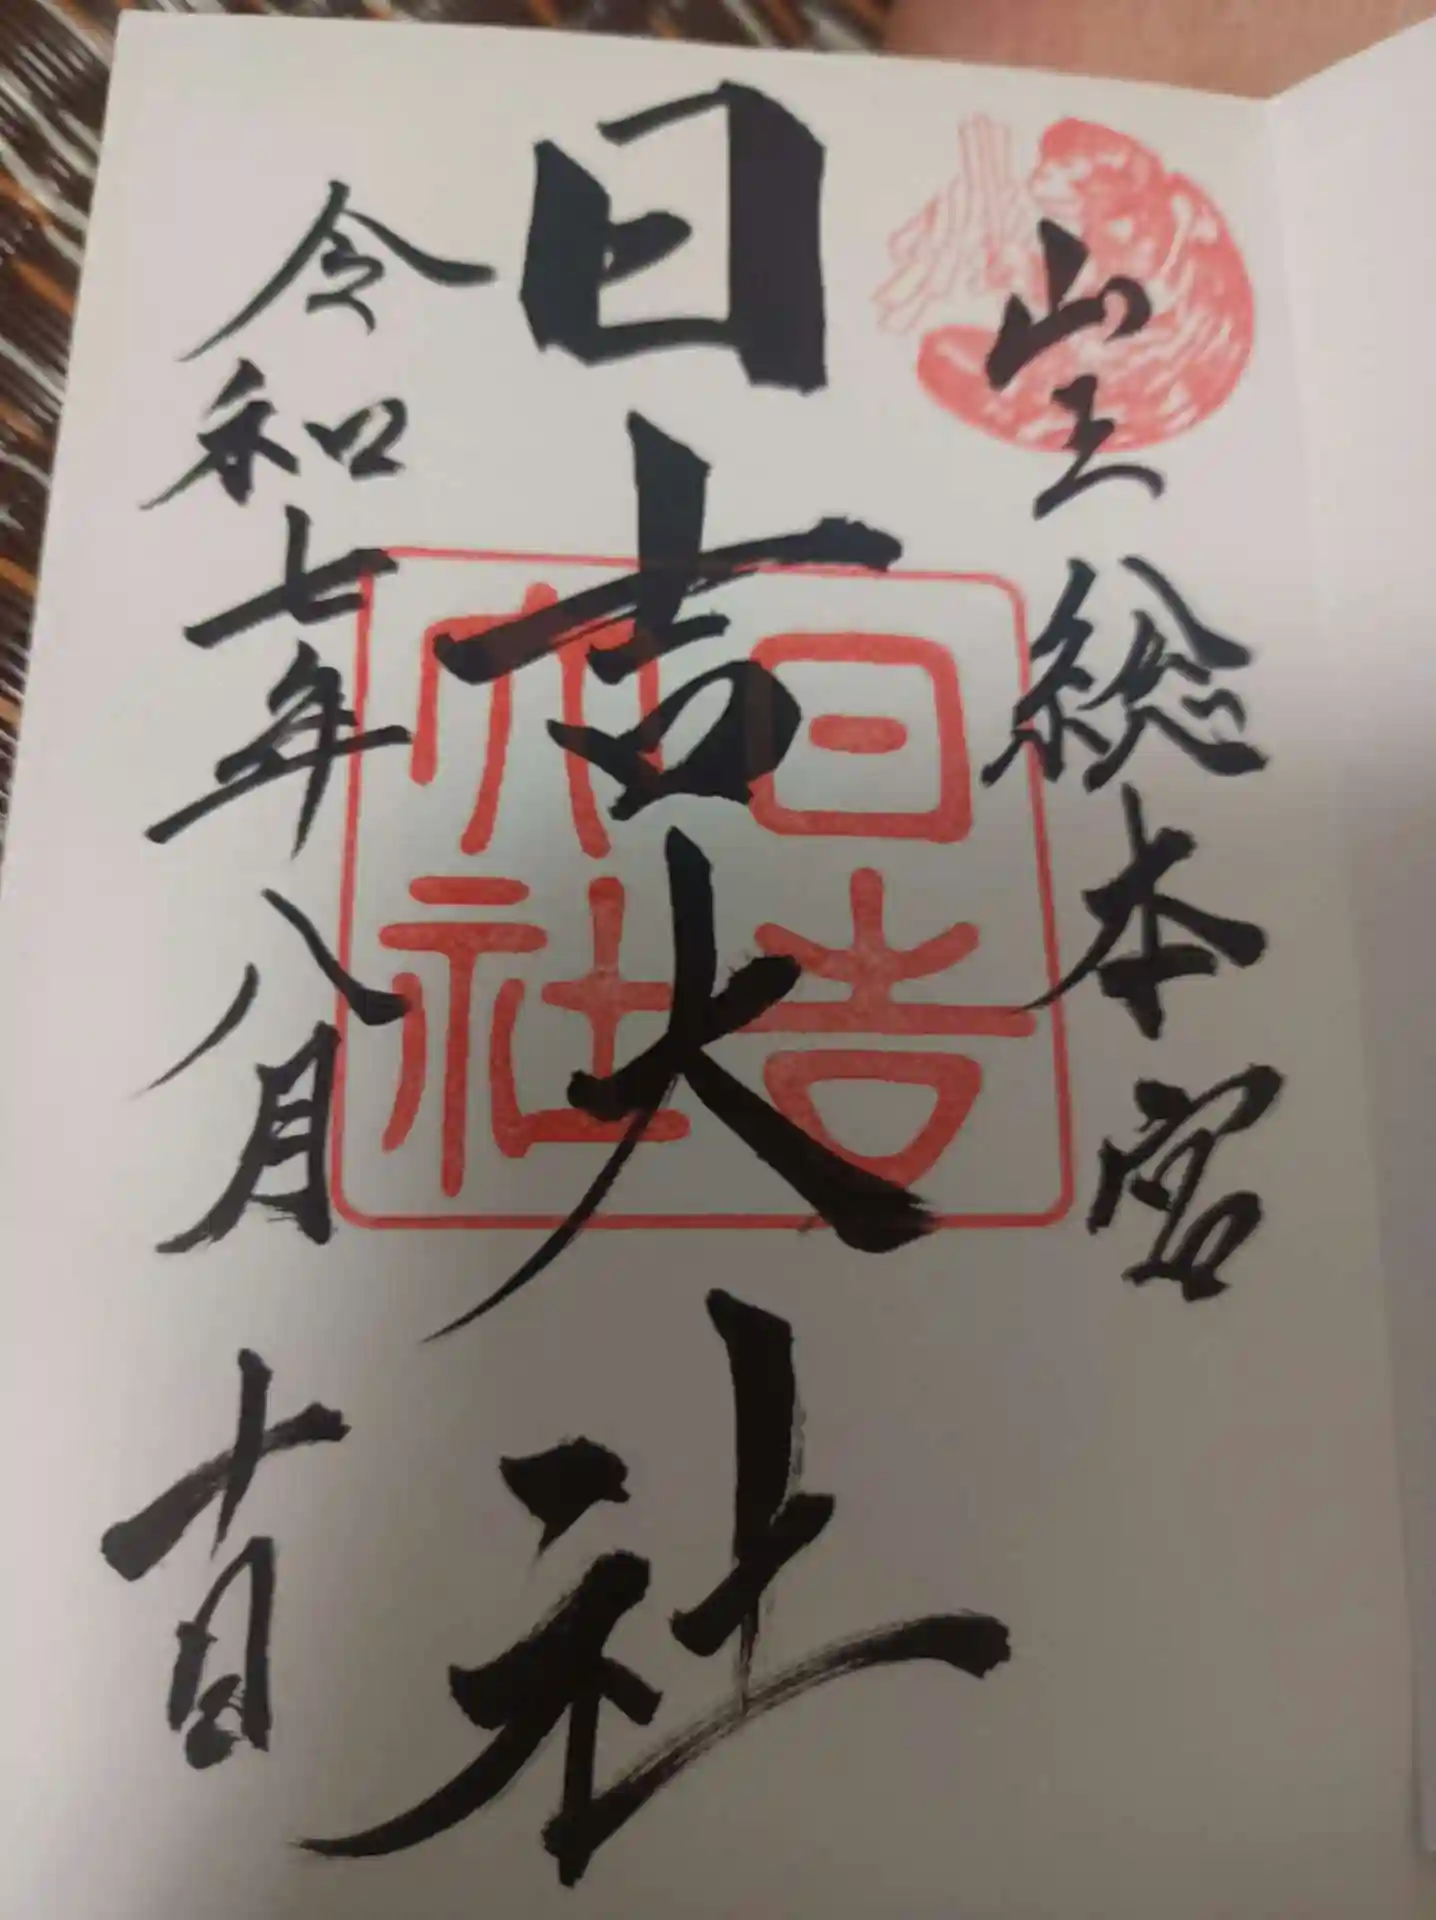 山王総本宮
日吉大社
日吉
大社
令和七年八月十日